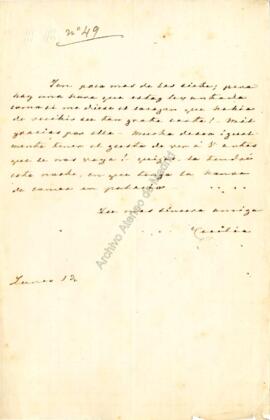 nº 49
Son poco mas de las siete, pero
hay una hora que estoy levantada
como si me diese el corazon que habia
de recibir su tan grata carta! Mil
gracias por ella. — Mucho deseo igual-
mente tener el gusto de ver á V antes
que se nos vaya! quizás lo tendré
esta noche, en que tengo la honra
de comer en palacio.
Su mas sincera amiga
Cecilia
Lunes 12
Archivo Ateneo de Madrid